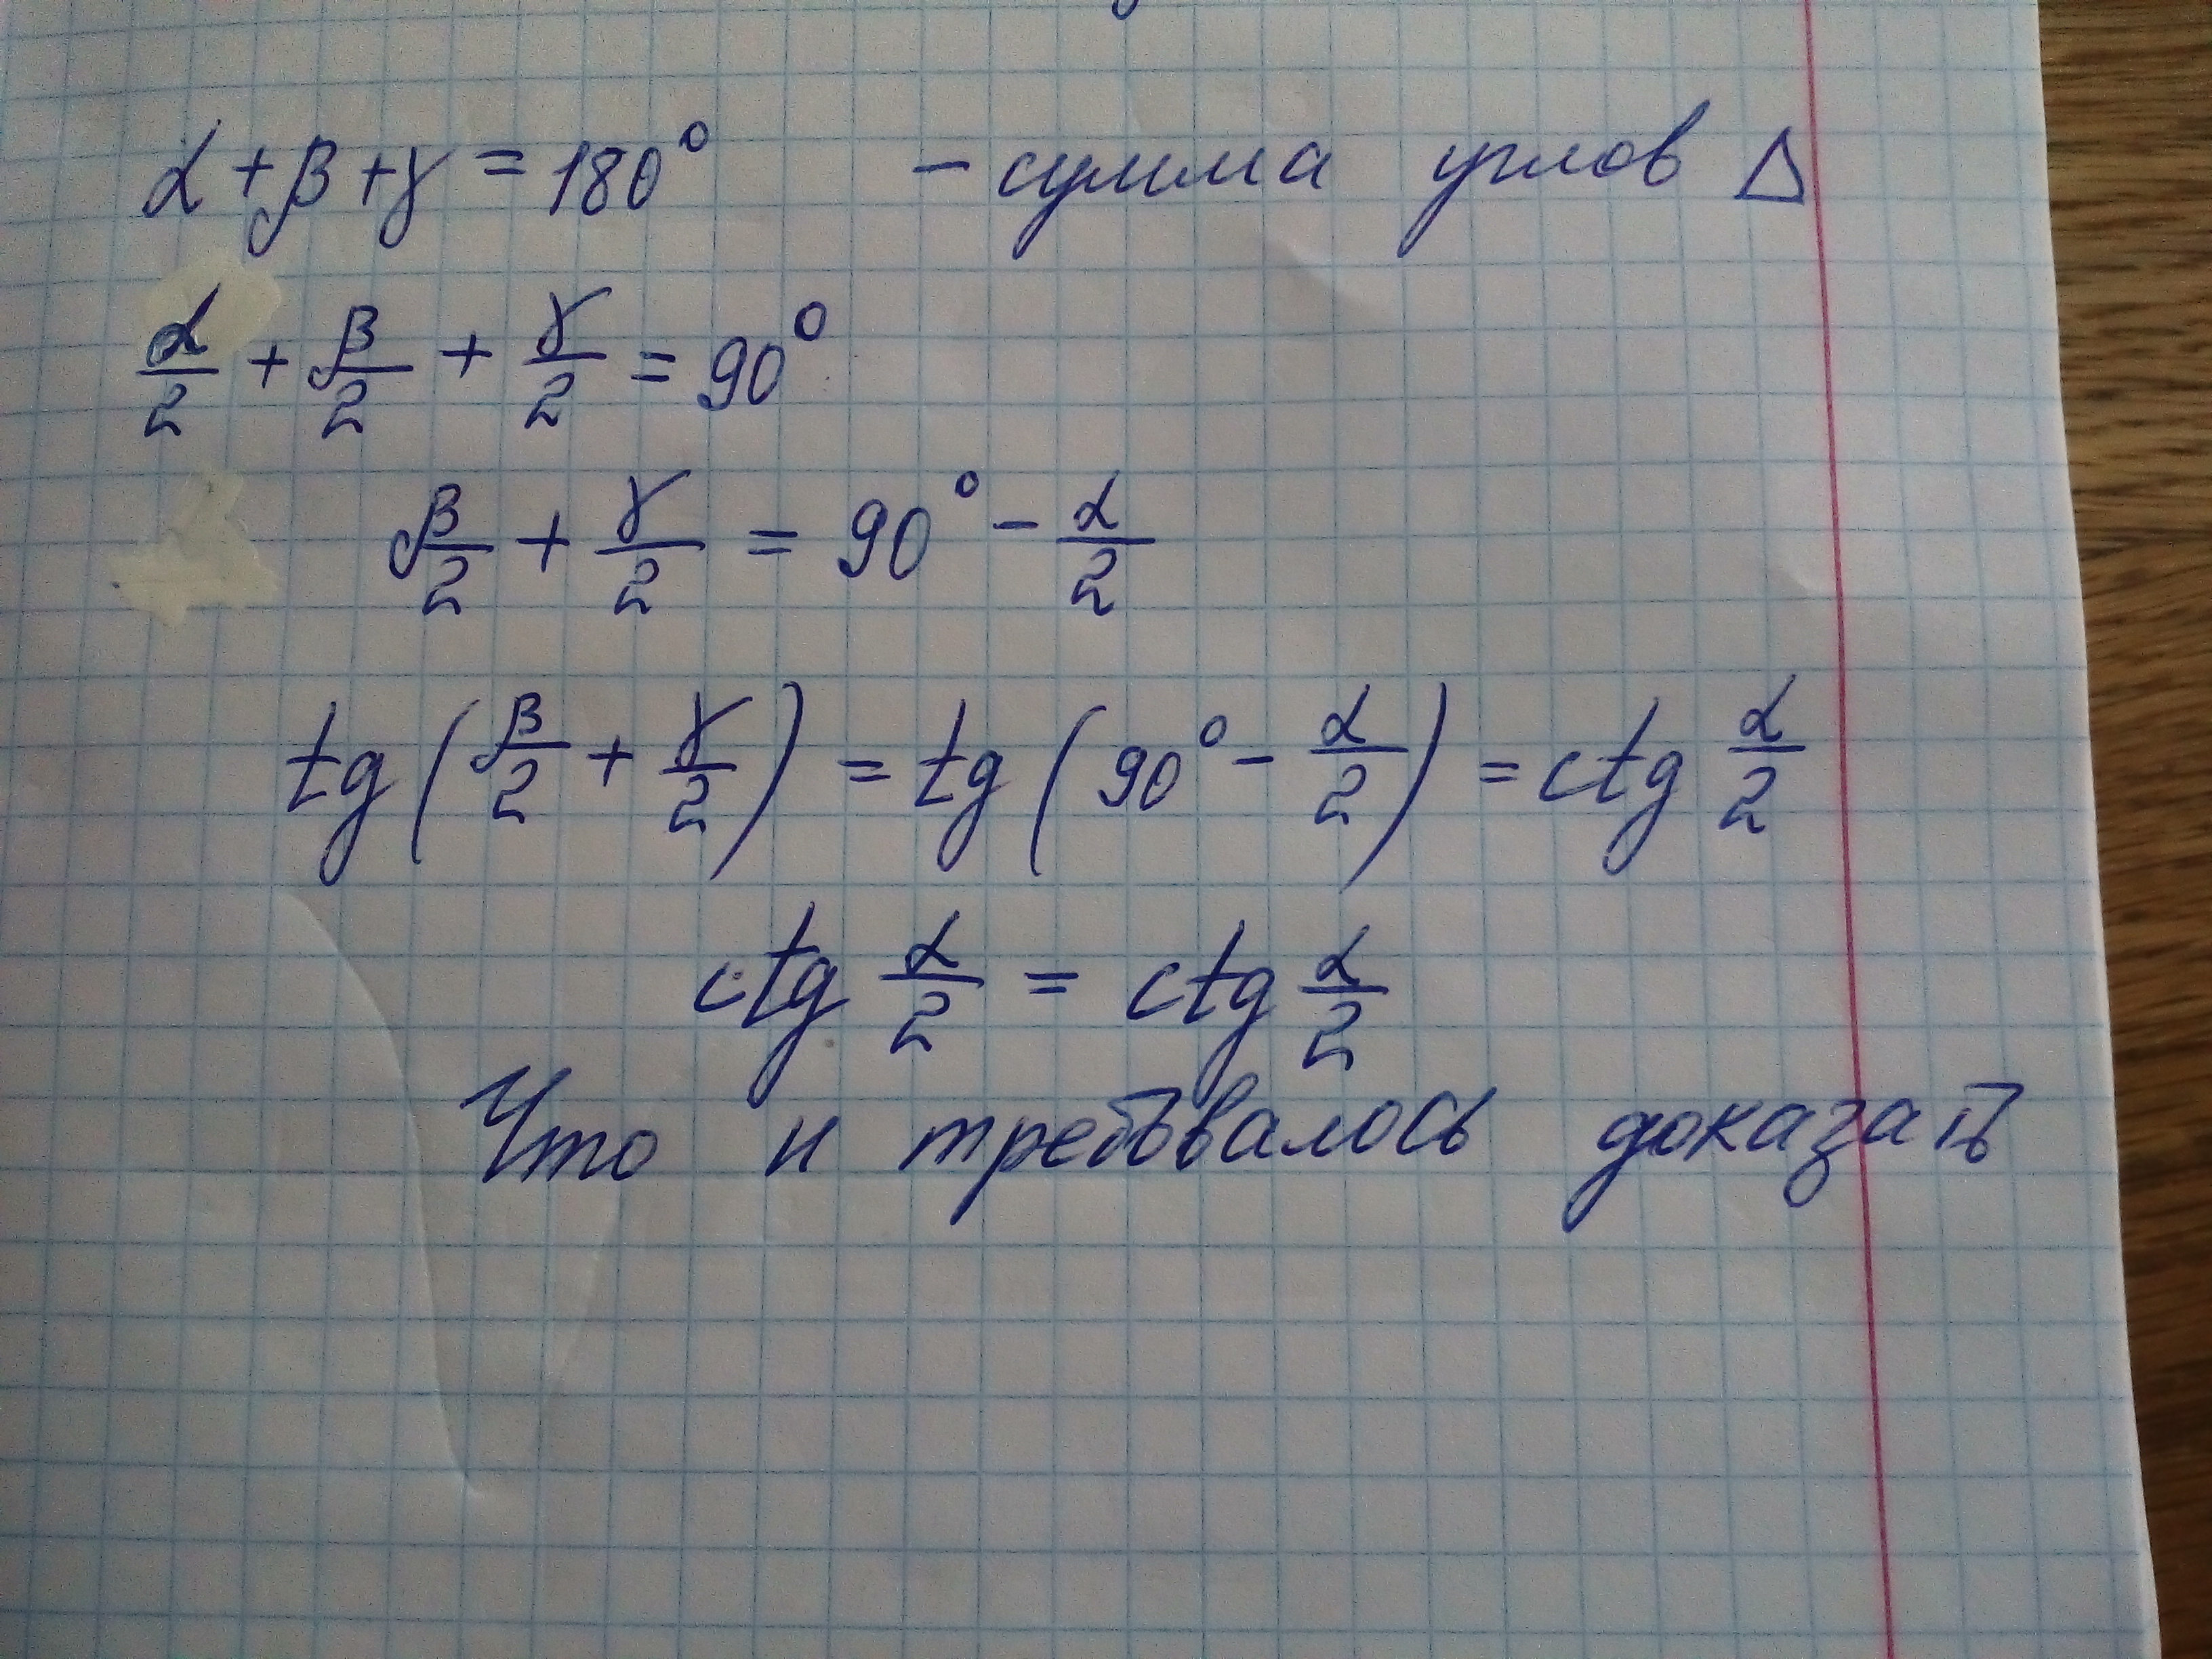 α + β + γ = 180° - сумма углов Δ
α/2 + β/2 + γ/2 = 90°
β/2 + γ/2 = 90° - α/2
tg(β/2 + γ/2) = tg(90° - α/2) = ctg α/2
ctg α/2 = ctg α/2
Что и требовалось доказать